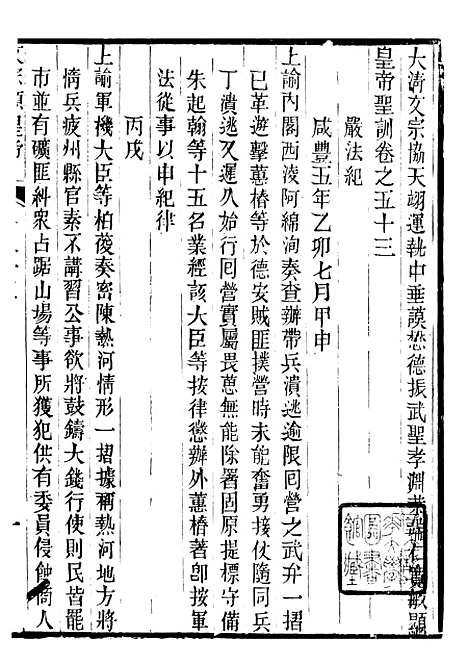 大清文宗協天翊運執中垂謨懋德振武聖孝淵恭端仁寬敏顯
皇帝聖訓卷之五十三
嚴法紀
咸豐五年乙卯七月甲申
上諭內閣西淩阿綿洵奏查辦帶兵潰逃逾限囘營之武弁一摺
已革遊擊蕙椿等於德安賊匪撲營時未能奮勇接仗隨同兵
丁潰逃又遲久始行囘營實屬畏葸無能除署固原提標守備
朱起翰等十五名業經該大臣等按律懲辦外蕙椿著卽按軍
法從事以申紀律
丙戌
上諭軍機大臣等柏葰奏密陳熱河情形一摺據稱熱河地方將
惰兵疲州縣官素不講習公事欲將鼓鑄大錢行使則民皆罷
市並有礦匪糾衆占踞山場等事所獲犯供有委員侵蝕商人